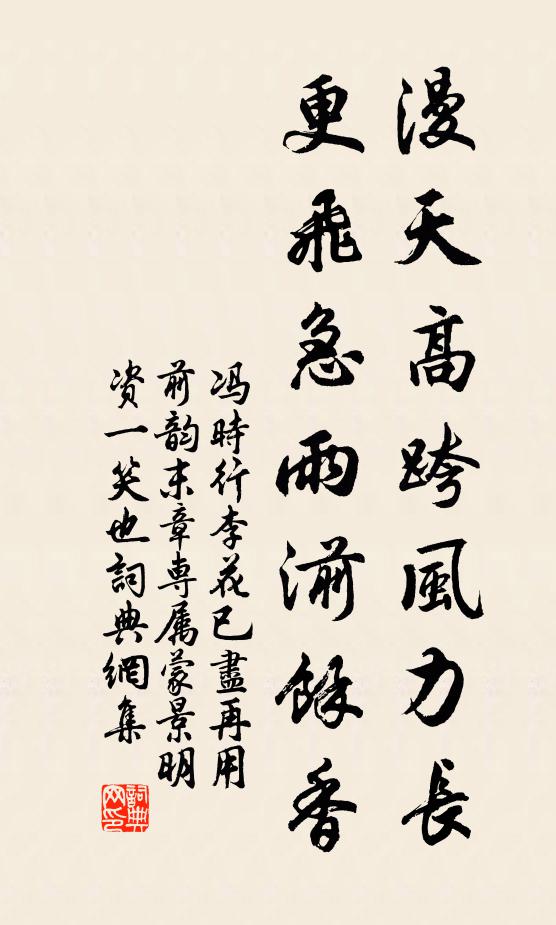 漫天高跨風力長
更飛急雨湔餘香
冯時行李花已盡再用
前韵末章専属蒙景明
资一笑也詞典網集
詞典网印